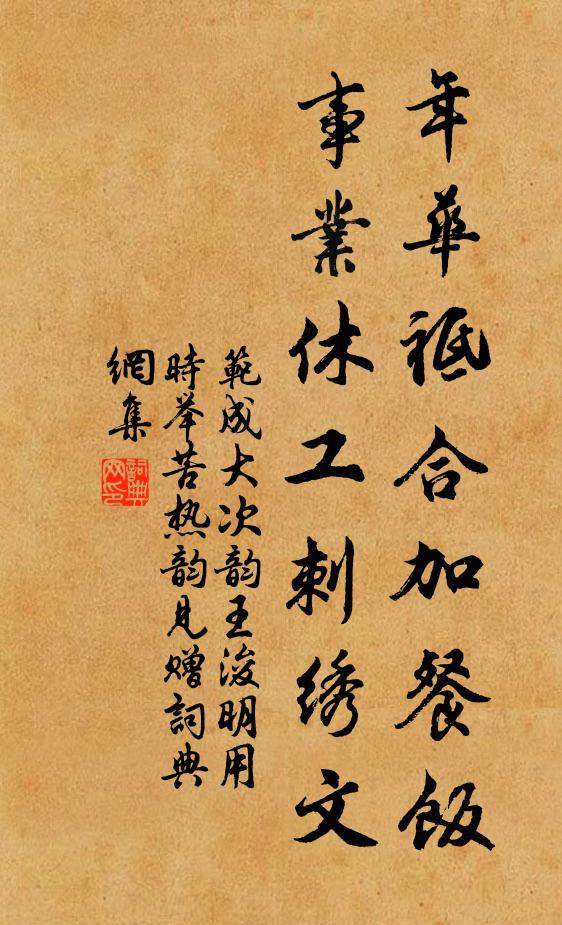 年華祗合加餐飯
事業休工刺绣文
範成大次韵王浚明用
時举苦热韵見赠詞典
網集
詞典
网印